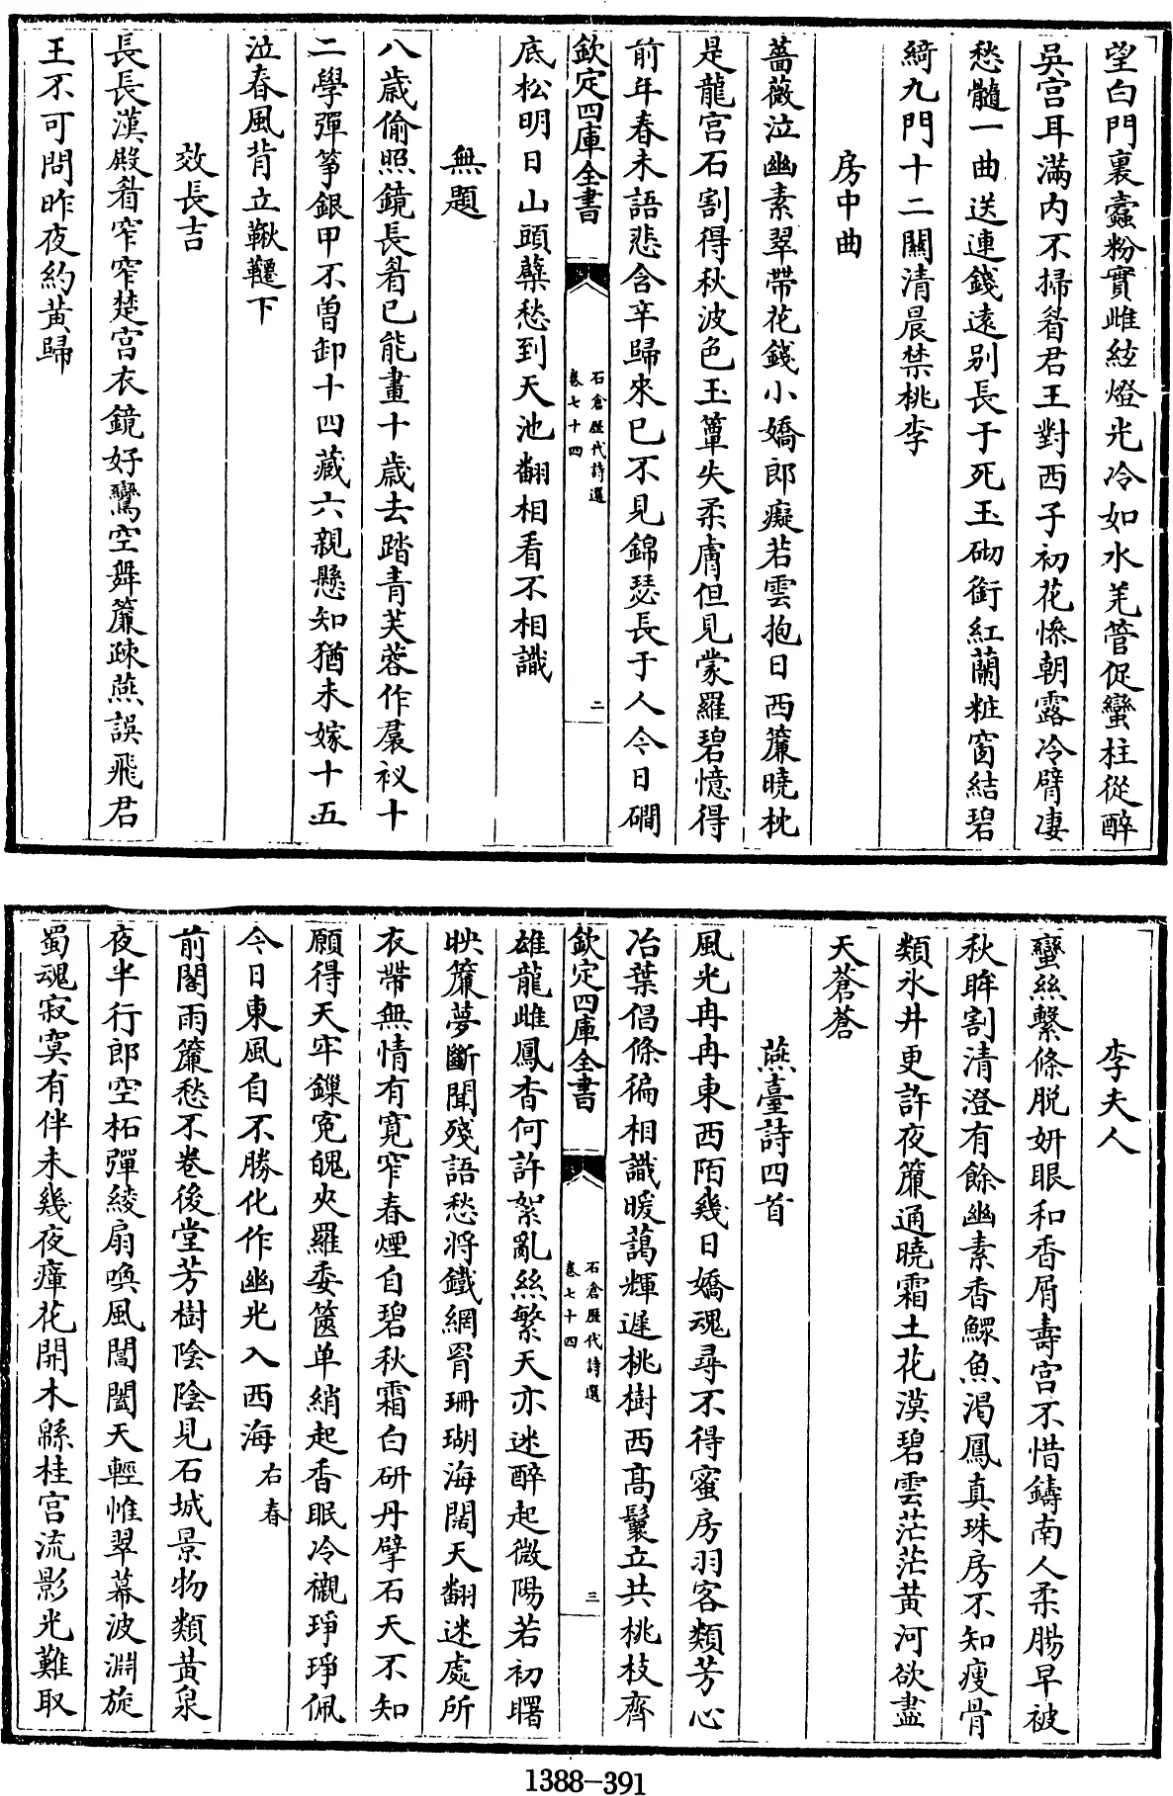 望白門裏蠹粉實雌絃燈光冷如水羌管促蠻柱從醉
吳宮耳滿内不掃眉君王對西子初花慘朝露冷臂凄
愁髓一曲送連錢逺别長于死玉砌銜紅蘭粧窗結碧
綺九門十二關清晨禁桃李
房中曲
薔薇泣幽素翠帶花錢小嬌郎癡若雲抱日西簾曉枕
是龍宮石割得秋波色玉簟失柔膚但見蒙羅碧憶得
前年春未語悲含辛歸來已不見錦瑟長于人今日磵
欽定四庫全書
石倉歷代詩選
卷七十四
二
底松明日山頭蘗愁到天池翻相看不相識
無題
八歲偷照鏡長眉已能畫十歲去踏青芙蓉作裙衩十
二學彈箏銀甲不曽卸十四藏六親懸知猶未嫁十五
泣春風背立鞦韆下
效長吉
長長漢殿眉窄窄楚宮衣鏡好鸞空舞簾疎燕誤飛君
王不可問昨夜約黃歸
李夫人
蠻絲繫條脱妍眼和香屑壽宮不惜鑄南人柔腸早被
秋眸割清澄有餘幽素香鰥魚渴鳳真珠房不知瘦骨
類氷井更許夜簾通曉霜土花漠碧雲茫茫黄河欲盡
天蒼蒼
燕臺詩四首
風光冉冉東西陌幾日嬌魂尋不得蜜房羽客類芳心
冶葉倡條徧相識暖藹輝遲桃樹西髙鬟立共桃枝齊
欽定四庫全書
石倉歷代詩選
卷七十四
三
雄龍雌鳳杳何許絮亂絲繁天亦迷醉起微陽若初曙
映簾夢斷聞殘語愁將鐵網罥珊瑚海闊天翻迷處所
衣帶無情有寛窄春煙自碧秋霜白研丹擘石天不知
願得天牢鏁寃魄夾羅委篋单綃起香眠冷襯琤琤佩
今日東風自不勝化作幽光入西海右春
前閣雨簾愁不卷後堂芳樹陰陰見石城景物類黃泉
夜半行郎空柘彈綾扇喚風閶闔天輕帷翠幕波淵旋
蜀魂寂寞有伴未幾夜瘴花開木緜桂宮流影光難取
1388-391